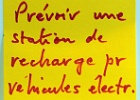 Prévoir une
station de
recharge pr
véhicules électr.